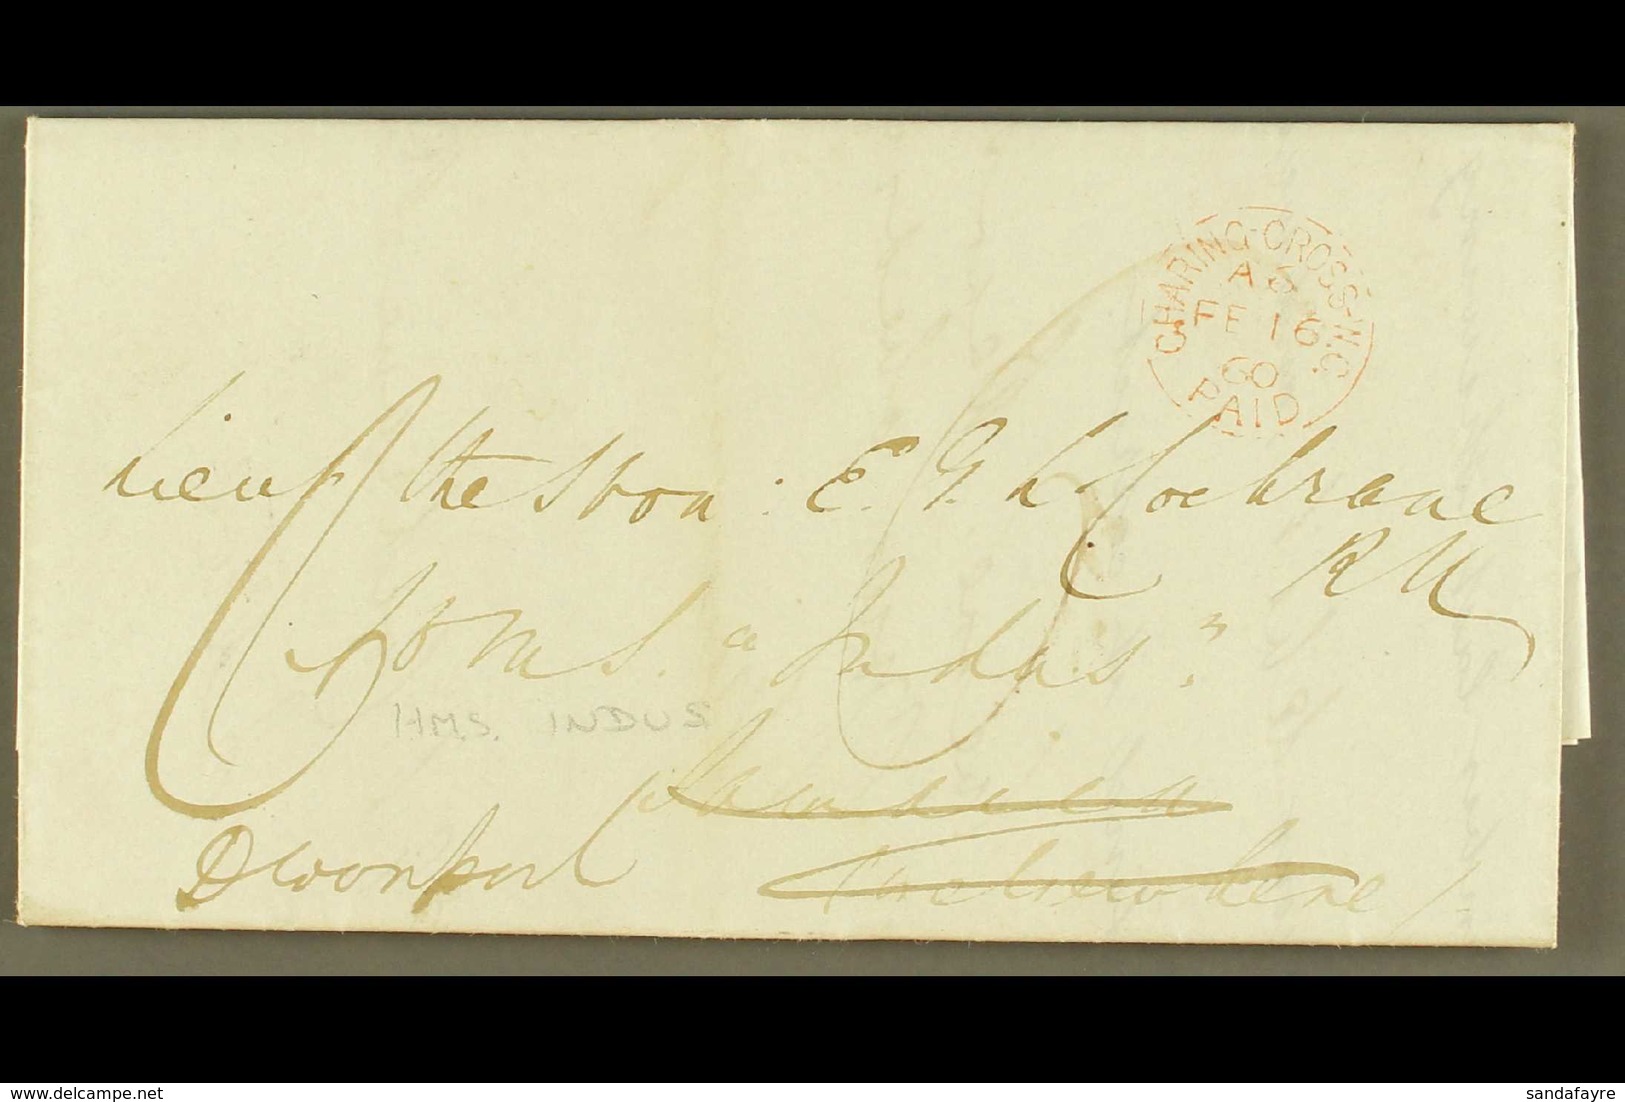 CHARING-CROSS-W.C.
A 6
FE 16
60
PAID
Lieut the Honl: E. G. L Cochrane
R M
H M S. "Indus"
HMS. INDUS
Devonport
or elsewhere
sandafayre